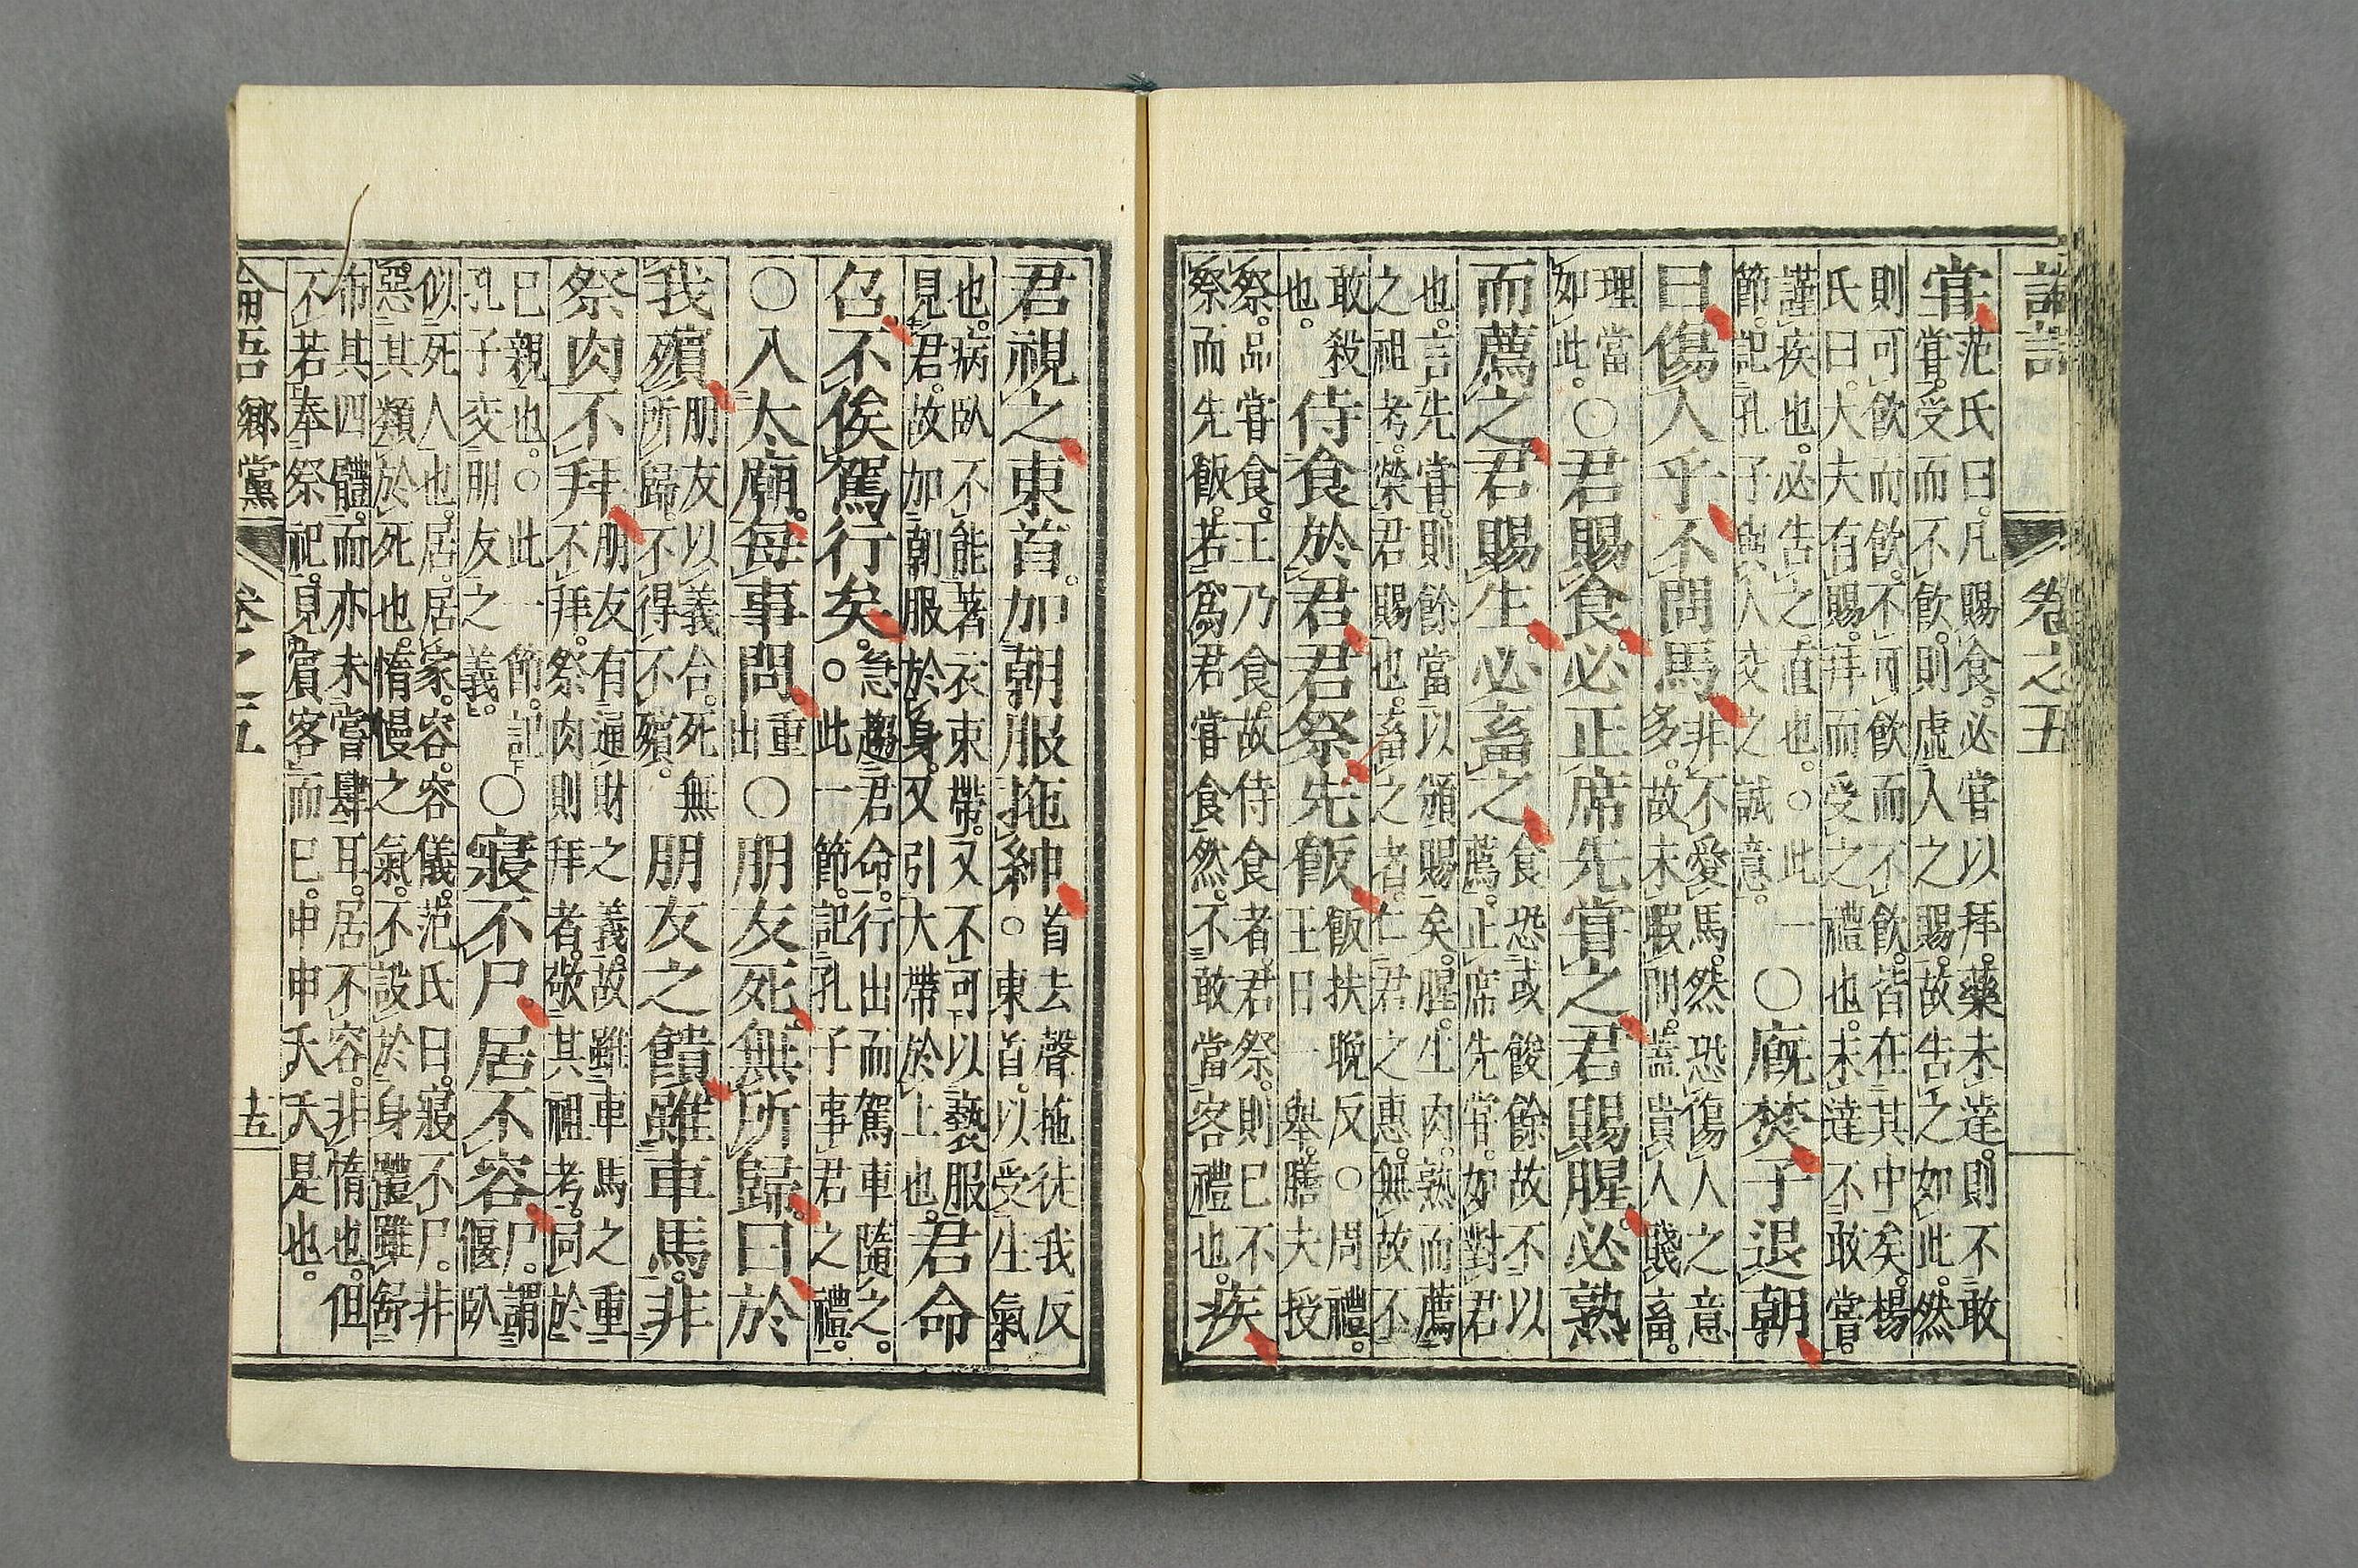 卷之五
嘗
范氏曰。凡賜食。必嘗以拜。藥未達。則不敢
嘗。受而不飲。則虛人之賜。故告之如此。然
則可飲而飲。不可飲而不飲。皆在其中矣。楊
氏曰。大夫有賜。拜而受之。禮也。未達不敢嘗。
謹疾也。必告之。直也。○此一
節。記孔子與人交之誠意。
○廐焚子退朝
曰傷人乎不問馬
非不愛馬。然恐傷人之意
多。故未暇問。蓋貴人賤畜。
理當
如此。
○君賜食。必正席先嘗之君賜腥。必熟
而薦之君賜生必畜之
食恐或餕餘故不以
薦。正席先嘗。如對君
也。言先嘗。則餘當以頒賜矣。腥。生肉。熟而薦
之祖考。榮君賜也。畜之者。仁君之惠。無故不
敢殺
也。
侍食於君君祭先飯
飯扶晚反○周禮。
王日一舉。膳夫授
祭。品嘗食。王乃食。故侍食者。君祭。則已不
祭而先飯。若爲君嘗食然。不敢當客禮也。
疾
君視之東首。加朝服拖紳
首去聲拖徒我反
○東首。以受生氣
也。病臥不能著衣束帶。又不可以褻服
見君。故加朝服於身。又引大帶於上也。
君命
召不俟駕行矣
急趨君命。行出而駕車隨之。
○此一節。記孔子事君之禮。
○入太廟。每事問
重
出
○朋友死。無所歸。曰於
我殯
朋友以義合。死無
所歸。不得不殯。
朋友之饋雖車馬。非
祭肉不拜
朋友有通財之義。故雖車馬之重
不拜。祭肉則拜者。敬其祖考。同於
已親也。○此一節。記
孔子交朋友之義。
○寢不尸居不容
尸。謂
偃臥
似死人也。居。居家。容。容儀。范氏曰。寢不尸。非
惡其類於死也。惰慢之氣。不設於身體。雖舒
布其四體。而亦未嘗肆耳。居不容。非惰也。但
不若奉祭祀。見賓客而已。申申夭夭是也。
論語 鄉黨 卷之五 十五